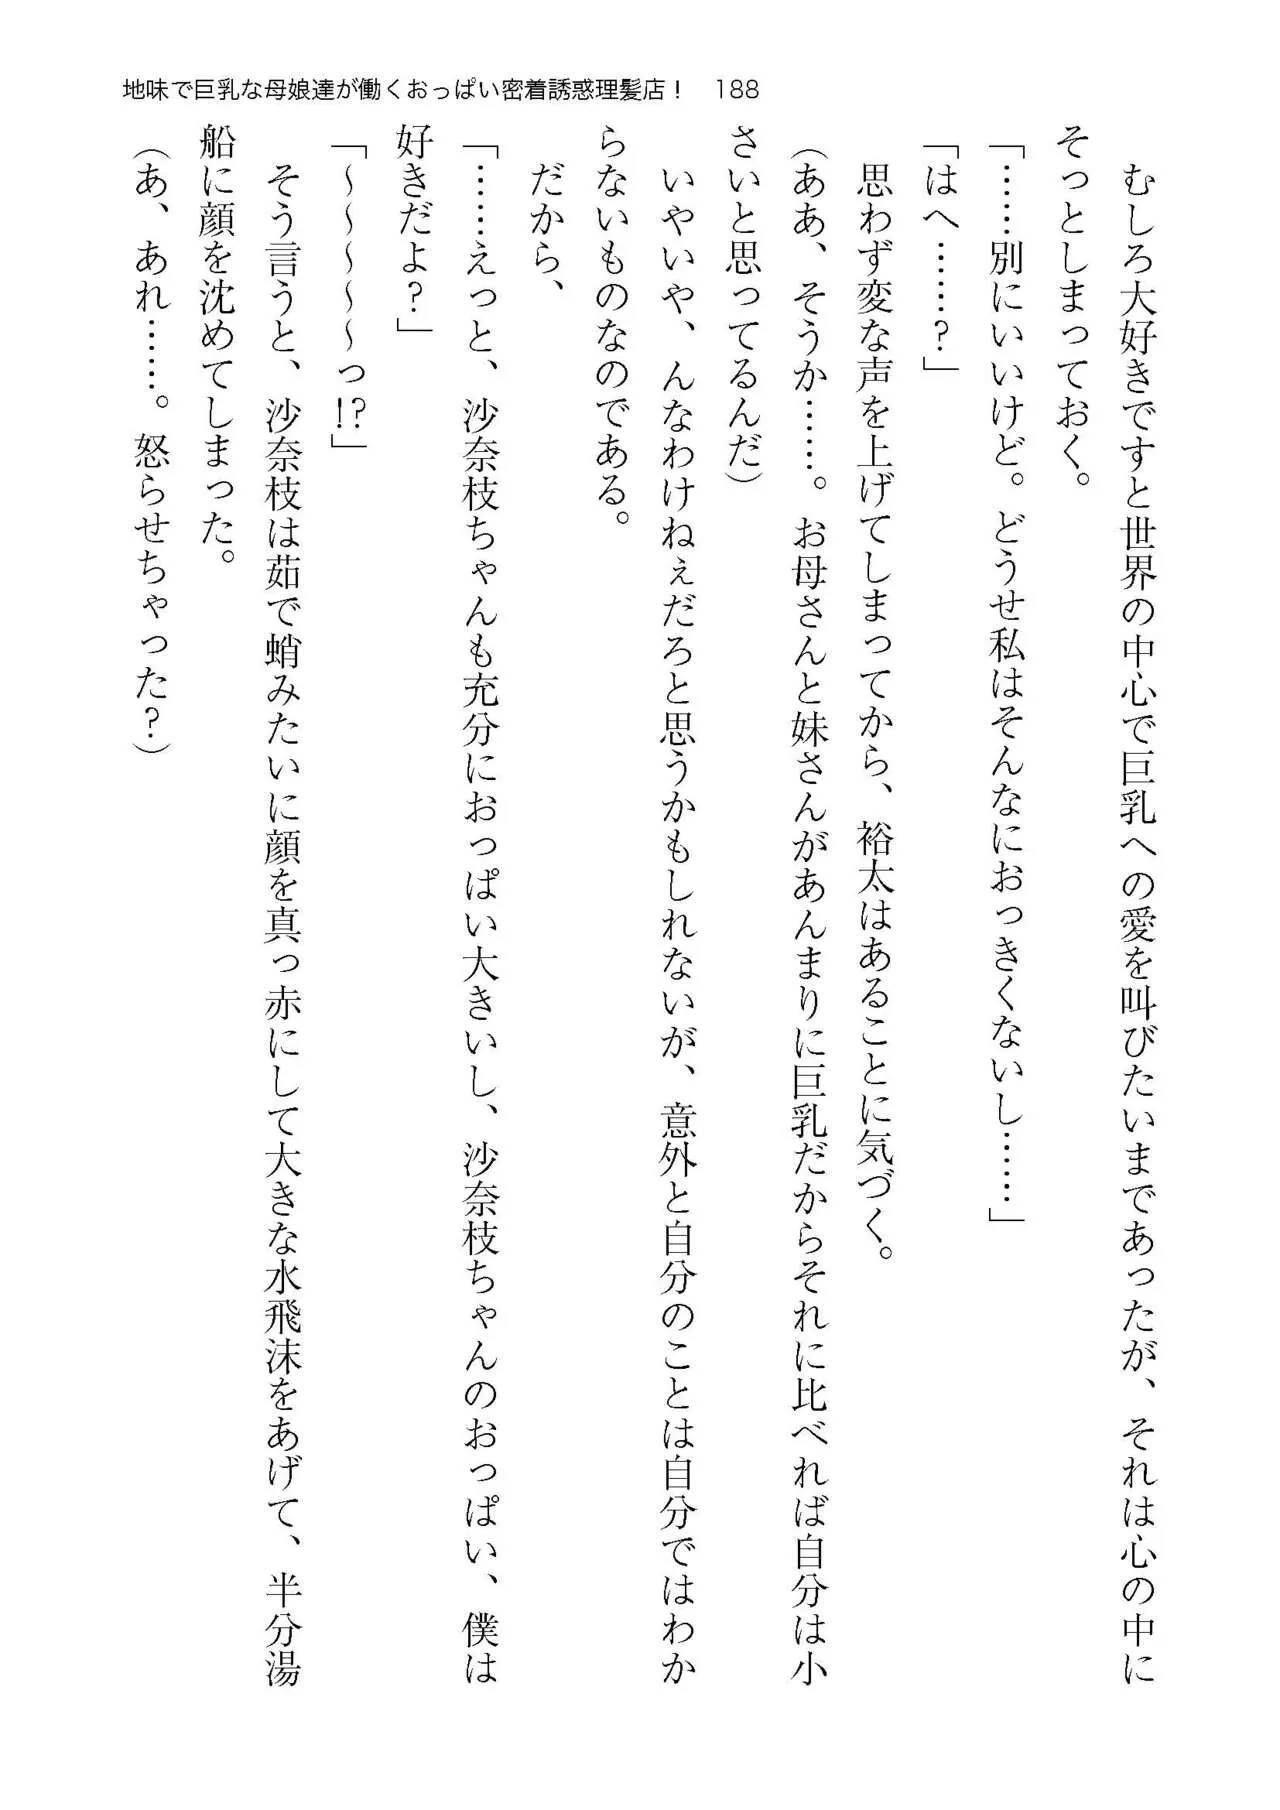 地味で巨乳な母娘達が働くおっぱい密着誘惑理髪店！　188
　むしろ大好きですと世界の中心で巨乳への愛を叫びたいまであったが、それは心の中に
そっとしまっておく。
「……別にいいけど。どうせ私はそんなにおっきくないし……」
「はへ……？」
　思わず変な声を上げてしまってから、裕太はあることに気づく。
（ああ、そうか……。お母さんと妹さんがあんまりに巨乳だからそれに比べれば自分は小
さいと思ってるんだ）
　いやいや、んなわけねぇだろと思うかもしれないが、意外と自分のことは自分ではわか
らないものなのである。
　だから、
「……えっと、沙奈枝ちゃんも充分におっぱい大きいし、沙奈枝ちゃんのおっぱい、僕は
好きだよ？」
「～～～～～っ!?」
　そう言うと、沙奈枝は茹で蛸みたいに顔を真っ赤にして大きな水飛沫をあげて、半分湯
船に顔を沈めてしまった。
（あ、あれ……。怒らせちゃった？）